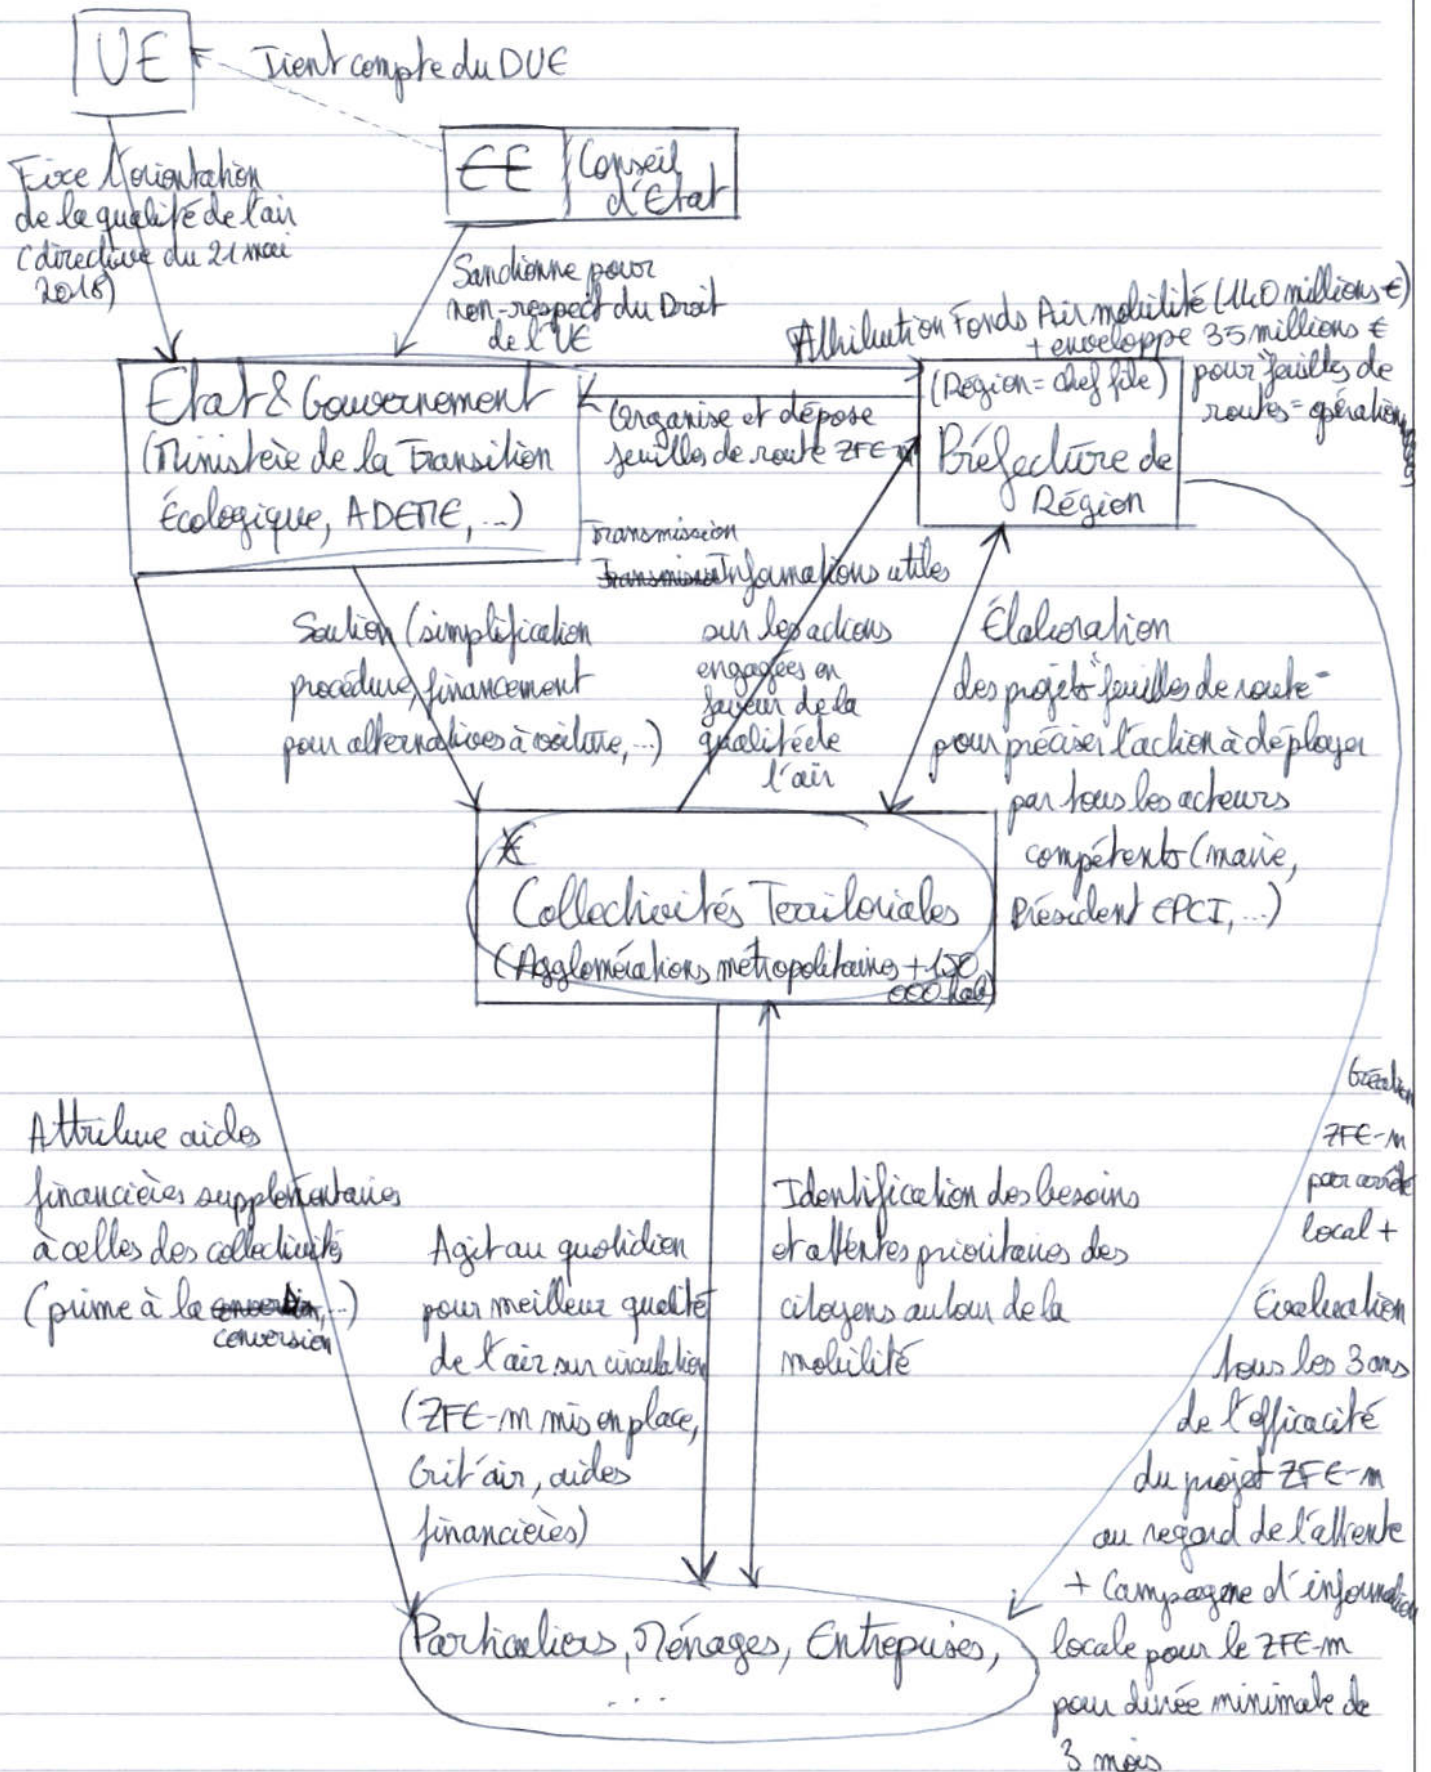 UE
Tient compte du DUE
CE
Conseil
d'Etat
Fixe l'orientation
de la qualité de l'air
(directive du 21 mai
2018)
Sanctionne pour
non-respect du Droit
de l'UE
Attribution Fonds Air mobilité (140 millions €)
+ enveloppe 35 millions €
pour feuilles de
routes = opération
Etat & Gouvernement
(Ministère de la Transition
Écologique, ADEME, ...)
Organise et dépose
feuilles de route ZFE-m
(Région = chef file)
Préfecture de
Région
Transmission
Informations utiles
sur les actions
engagées en
faveur de la
qualité de
l'air
Soutien (simplification
procédure, financement
pour alternatives à voiture, ...)
Élaboration
des projets "feuilles de route"
pour préciser l'action à déployer
par tous les acteurs
compétents (mairie,
Président EPCI, ...)
Collectivités Territoriales
(Agglomérations métropolitaines +150
000 hab)
Attribue aides
financières supplémentaires
à celles des collectivités
(prime à la ...)
conversion
Agit au quotidien
pour meilleur qualité
de l'air sur circulation
(ZFE-m mis en place,
Crit'air, aides
financières)
Identification des besoins
et attentes prioritaires des
citoyens autour de la
mobilité
Création
ZFE-m
par arrêté
local +
Évaluation
tous les 3 ans
de l'efficacité
du projet ZFE-m
au regard de l'attente
+ Campagne d'information
locale pour le ZFE-m
pour durée minimale de
3 mois
Particuliers, Ménages, Entreprises,
...